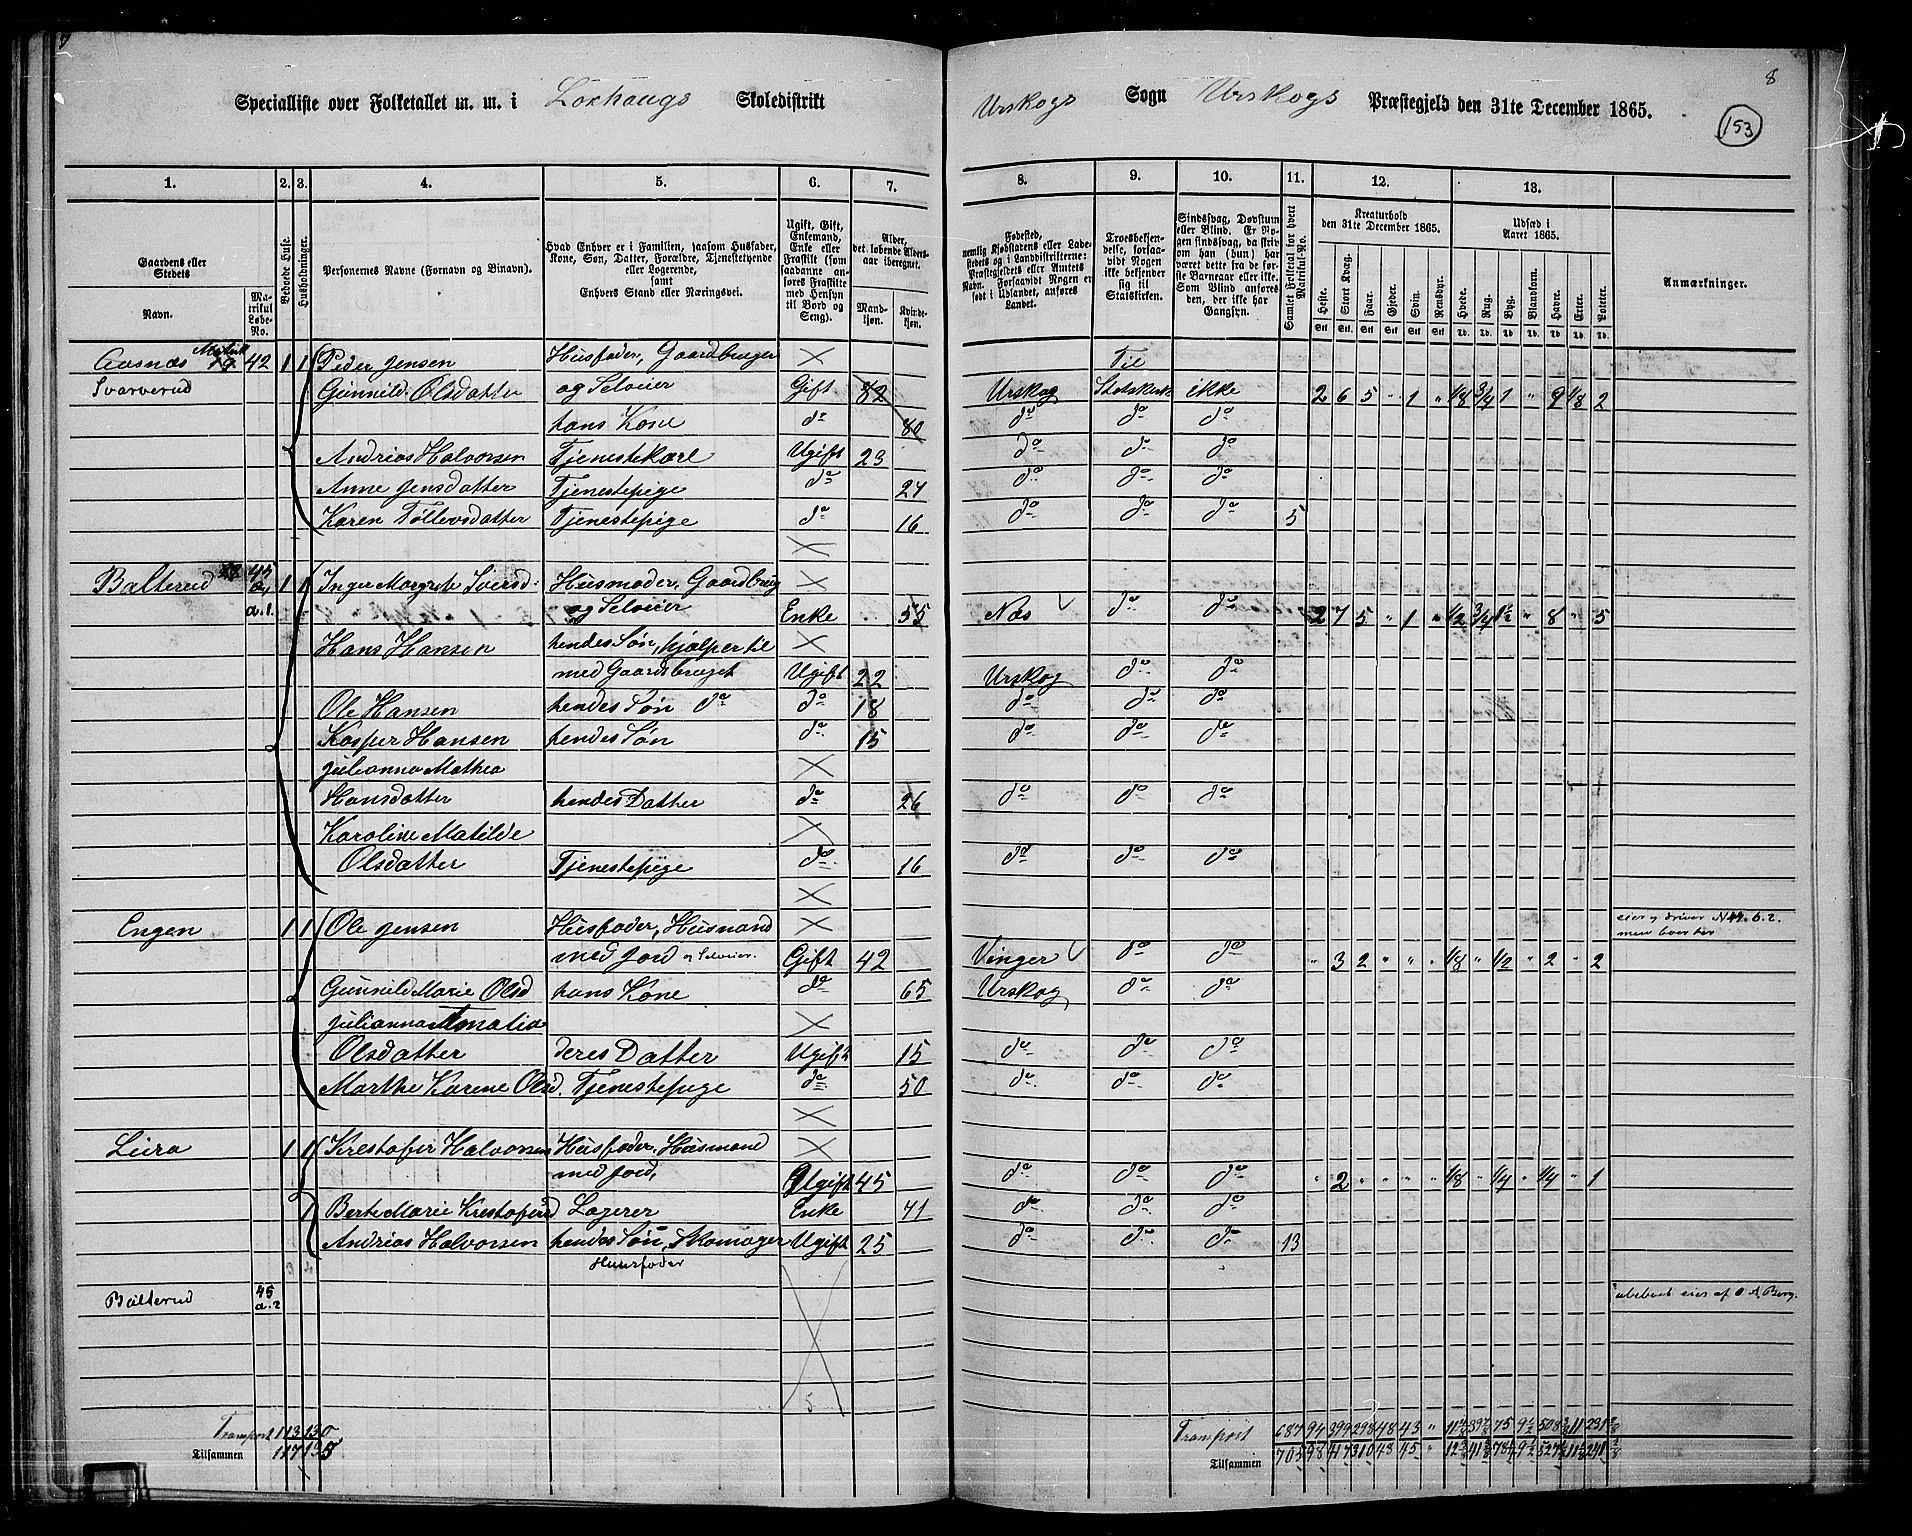 8
Specialliste over Folketallet m. m. i Loxhaugs Skoledistrikt Urskogs Sogn Urskogs Præstegjeld den 31te December 1865.
153
1. 2. 3. 4. 5. 6. 7. 8. 9. 10. 11. 12. 13.
Gaardens eller Stedets
Navn. Matrikul Løbe-No.
Beboede Huse.
Husholdninger.
Personernes Navne (Fornavn og Binavn).
Hvad Enhver er i Familien, saasom Husfader, Kone, Søn, Datter, Forældre, Tjenestetyende eller Logerende, samt Enhvers Stand eller Næringsvei.
Ugift, Gift, Enkemand, Enke eller Fraskilt (som saadanne anføres Fraskilte med Hensyn til Bord og Seng).
Alder, det løbende Alders-aar iberegnet.
Mandkjøn. Kvindekjøn.
Fødested, nemlig Kjøbstadens eller Ladestedets og i Landdistrikterne: Præstegjeldets eller Amtets Navn. Forsaavidt Nogen er født i Udlandet, anføres Landet.
Troesbekjendelse, forsaavidt Nogen ikke bekjender sig til Statskirken.
Sindssvag, Døvstum eller Blind. Er Nogen sindssvag, da skriv om han (hun) har været dette fra de første Barneaar eller ikke. Som Blind anføres den, der ikke har Gangsyn.
Samlet Folketal for hvert Matrikul-No.
Kreaturhold den 31te December 1865.
Heste. Stort Kvæg. Faar. Gjeder. Svin. Rensdyr.
Udsæd i Aaret 1865.
Hvede. Rug. Byg. Blandkorn. Havre. Erter. Poteter.
Anmærkninger.
Aasnæs 42 1 1 Peder Jensen Husfader, Gaardbruger Til
Svarverud Gunnild Olsdatter og Selveier Gift 82 Urskog Statskirk ikke 2 6 5 " 1 " 1/8 3/4 1 " 9 1/8 2
hans Kone do 80 do do do
Andrias Halvorsen Tjenestekarl Ugift 23 do do do
Anne Jensdatter Tjenestepige do 24 do do do
Karen Tollevsdatter Tjenestepige do 16 do do do 5
Balterud 45 a. 1. 1 1 Inger Margrete Iversd: Husmoder, Gaardbrug
og Selveier Enke 55 Næs do do 2 7 5 " 1 " 1/2 3/4 1 1/2 " 8 " 5
Hans Hansen hendes Søn, hjælper til
med Gaardsbruget Ugift 22 Urskog do do
Ole Hansen hendes Søn do do 18 do do do
Kasper Hansen hendes Søn do 15 do do do
Julianna Mathea
Hansdatter hendes Datter do 26 do do do
Karoline Matilde
Olsdatter Tjenestepige do 16 do do do
Engen 1 1 Ole Jensen Husfader, Husmand eier og driver N 44. b. 2.
med Jord og Selveier. Gift 42 Vinger do do " 3 2 " " " 1/8 " 1/2 " 2 " 2 men
Gunnild Marie Olsd hans Kone do 65 Urskog do do
Julianna Amalia
Olsdatter deres Datter Ugift 15 do do do
Marthe Karine Olsd. Tjenestepige do 50 do do do
Leira 1 1 Krestofer Halvorsen Husfader, Husmand
med Jord, Ugift 45 do do do " 2 " " " " 1/8 " 1/4 " 1/4 " 1
Berte Marie Krestoferd Logerer Enke 71 do do do
Andrias Halvorsen hendes Søn, Skomager Ugift 25 do do do 13
Huusfader
Balterud 45 a. 2 ubeboet eies af O A Berg.
5
Transport 113 130 Transport 687 94 399 298 48 43 "
Tilsammen 117 135 Tilsammen 705 98 417 310 48 45 "